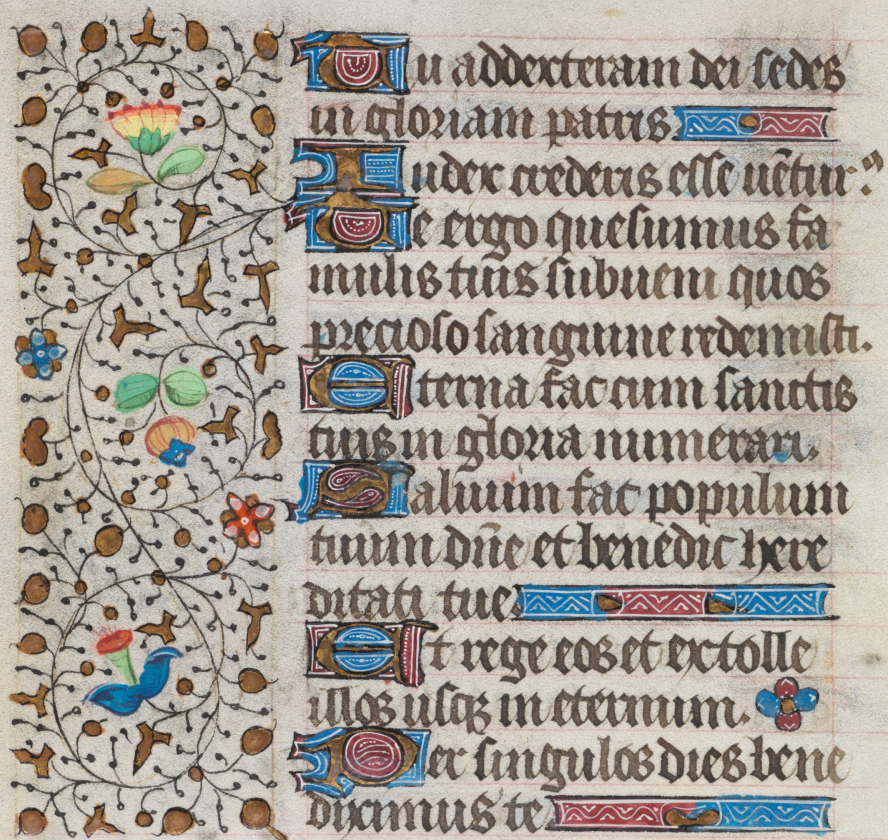 Tu addexteram dei sedes
in gloriam patris
Iudex crederis esse uẽtur⁹
Te ergo quesumus fa
mulis tuis subueni quos
precioso sanguine redemisti.
Eterna fac cum sanctis
tuis in gloria numerari.
Saluum fac populum
tuum dñe et benedic here
ditati tue.
Et rege eos et extolle
illos usqꝫ in eternum.
Per singulos dies bene
dicimus te